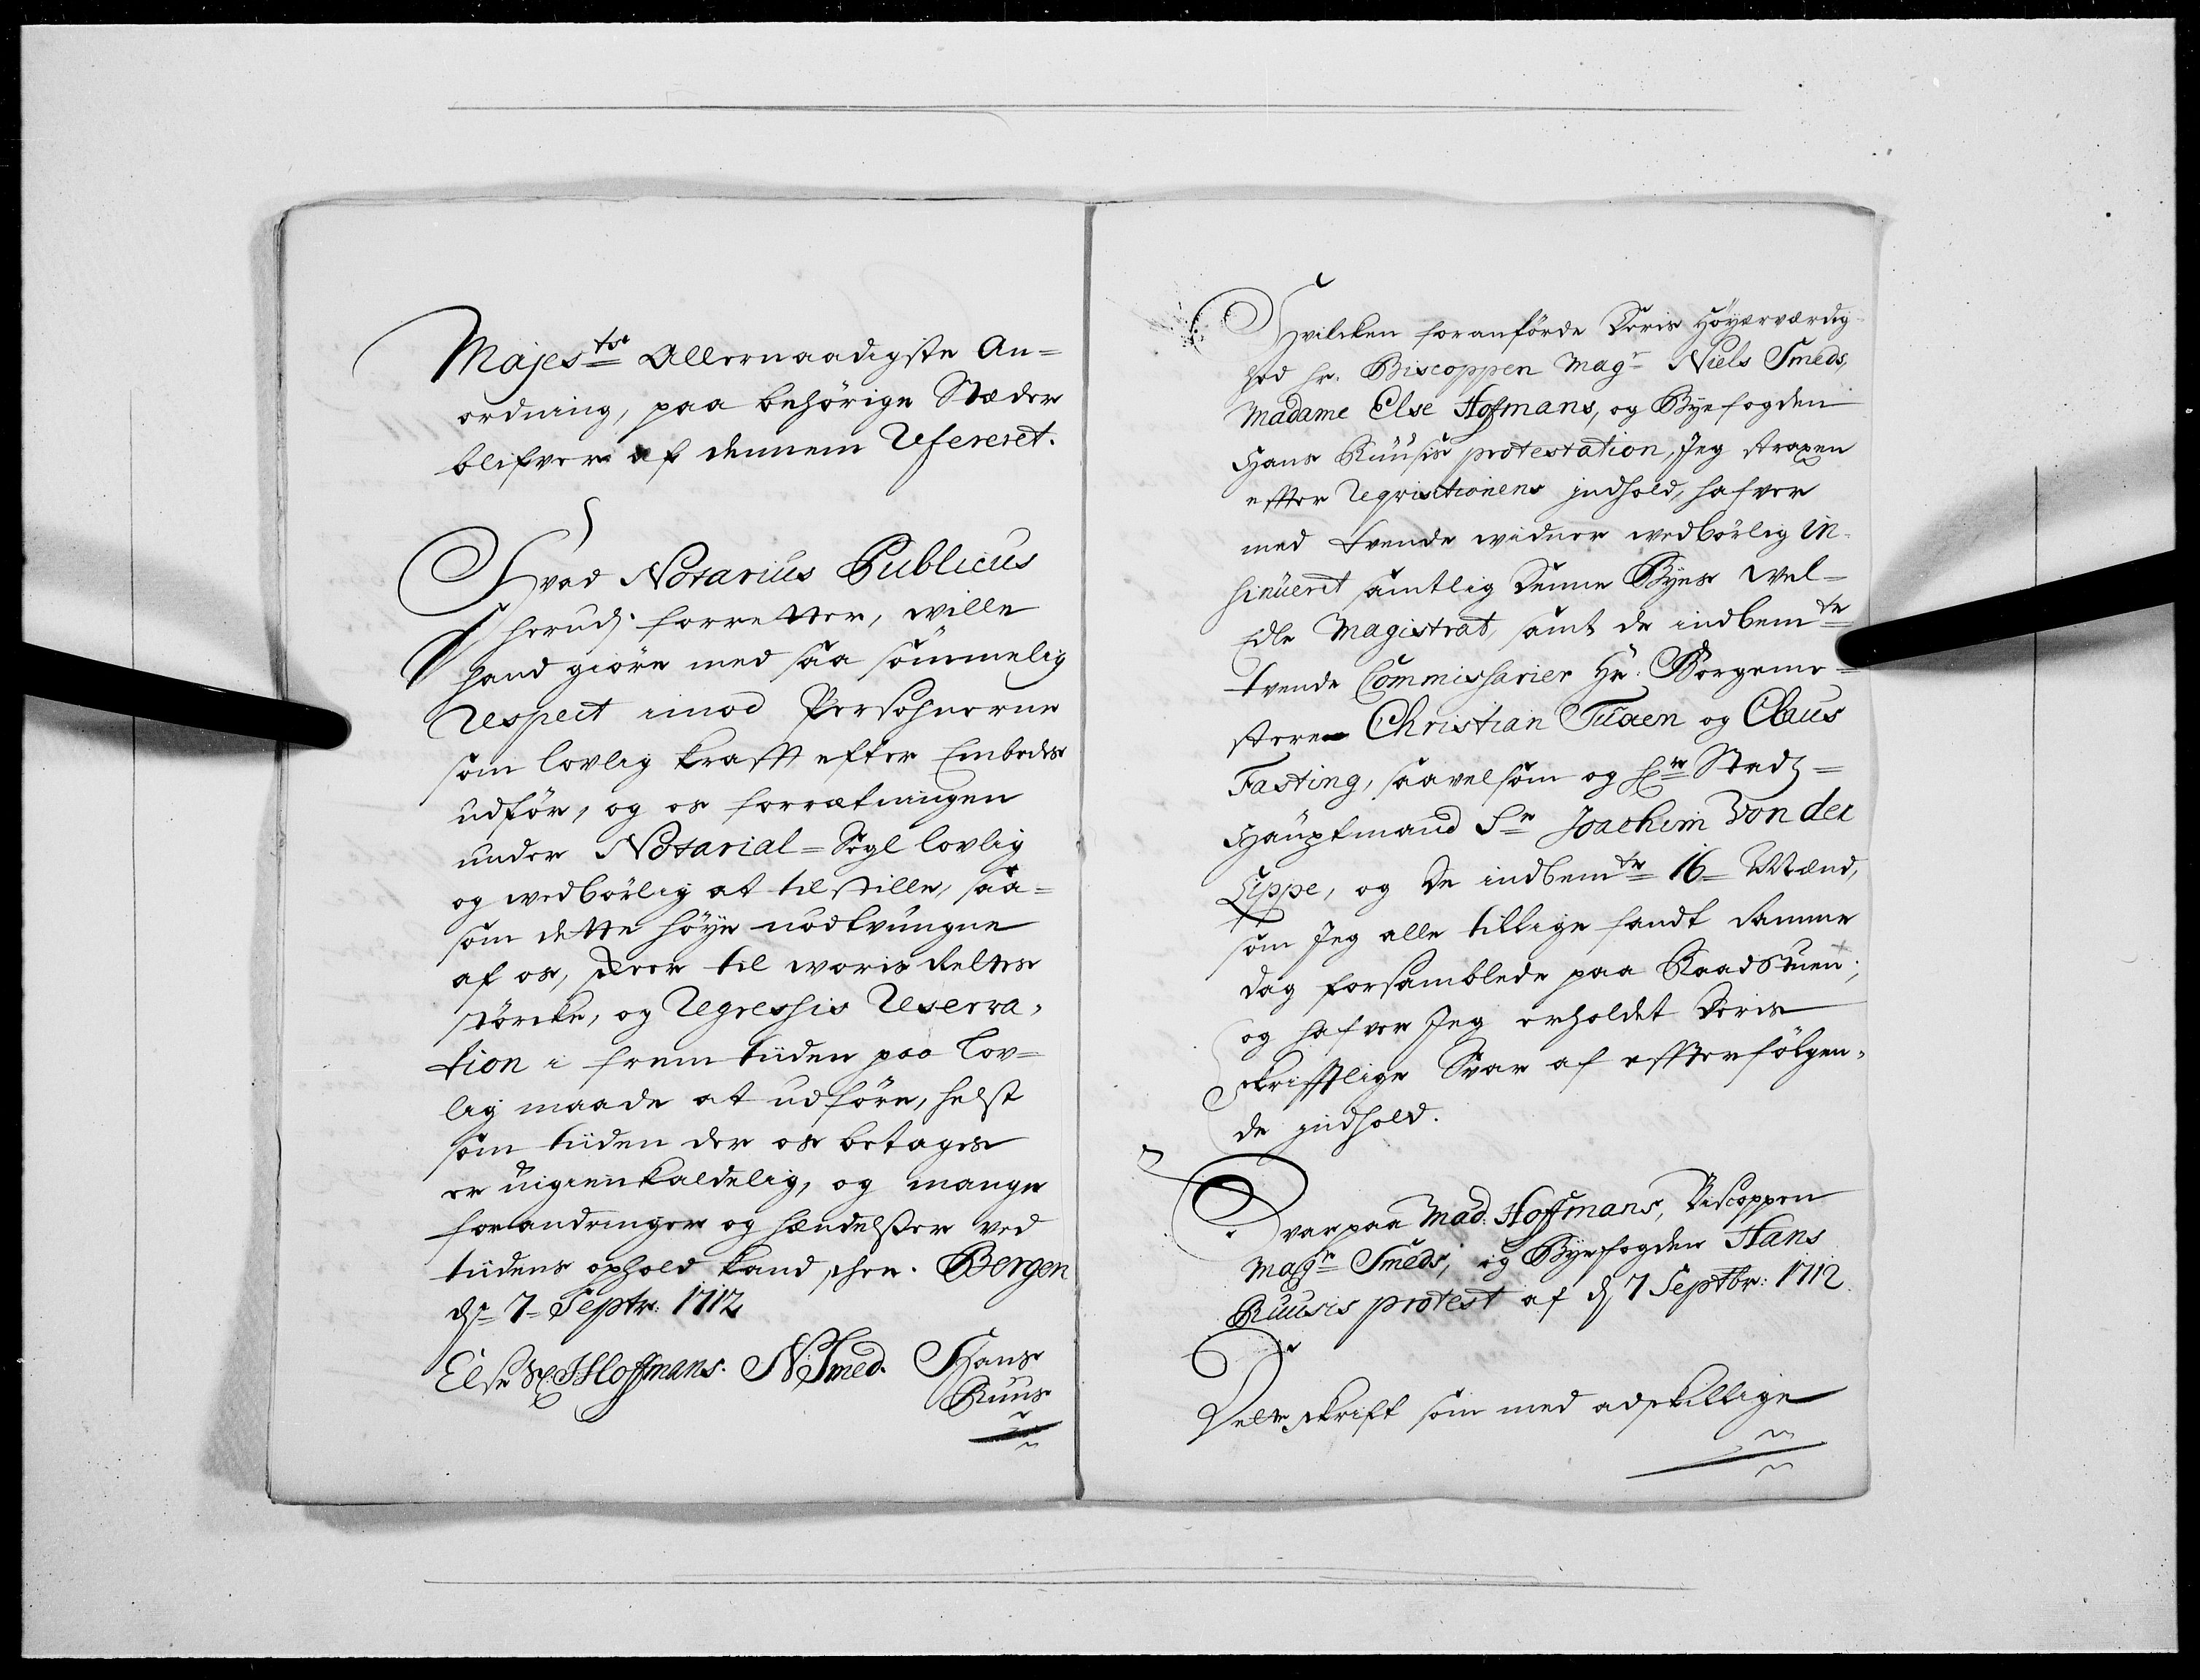 Majes^ts Allernaadigste An=
ordning, paa behörige Stæder
blifver af dennem Refereret.
Hvad Notarius Publicus
herudj forretter, wille
hand giöre med saa sömmelig
respect imod Persohnerne
som lovlig krafft efter Embedes
udför, og os forretningen
under Notarial=Segl lovlig
og wedbörlig at tilstille, saa=
som dette höye nödtvungne
af os, skeer til woris Rettes
störcke, og Regressis Reserva=
tion i fremtiiden paa Lov=
lig maade at udföre, helst
som tiiden der os betages
er uigienkaldelig, og mange
forandringer og hændelser ved
tiidens ophold kand skee. Bergen
d: 7 Septr: 1712
Else Sl. Hoffmans. NSmed. Hans
Ruus
Hvilcken foranförde Deris Höyærværdig
hed hr. Biscoppen Mag^r Niels Smeds,
Madame Else Hofmans, og Byefogden
Hans Ruusis protestation, Jeg straxen
effter Reqvisitionens indhold, hafver
med tvende widner wedbörlig in=
sinueret samtlig Denne Byes Vel=
Edle Magistrat, samt de indbem^te
tvende Commissarier Hr. Borgeme=
stere Christian Tuxen og Claus
Fasting, saavelsom og Hr Stadz=
Hauptmand Sr Joachim Von der
Lippe, og De indbem^te 16 Mænd,
som Jeg alle tillige fandt samme
dag forsamblede paa Raadstuen;
og hafver Jeg erholdet Deris
skrifftlige Svar af effterfölgen=
de indhold.
Svar paa Mad. Hoffmans, Biscoppen
Mag^r Smeds, og Byefogden Hans
Ruusis protest af d 7 Septbr: 1712.
Dette skrift som med adskillige